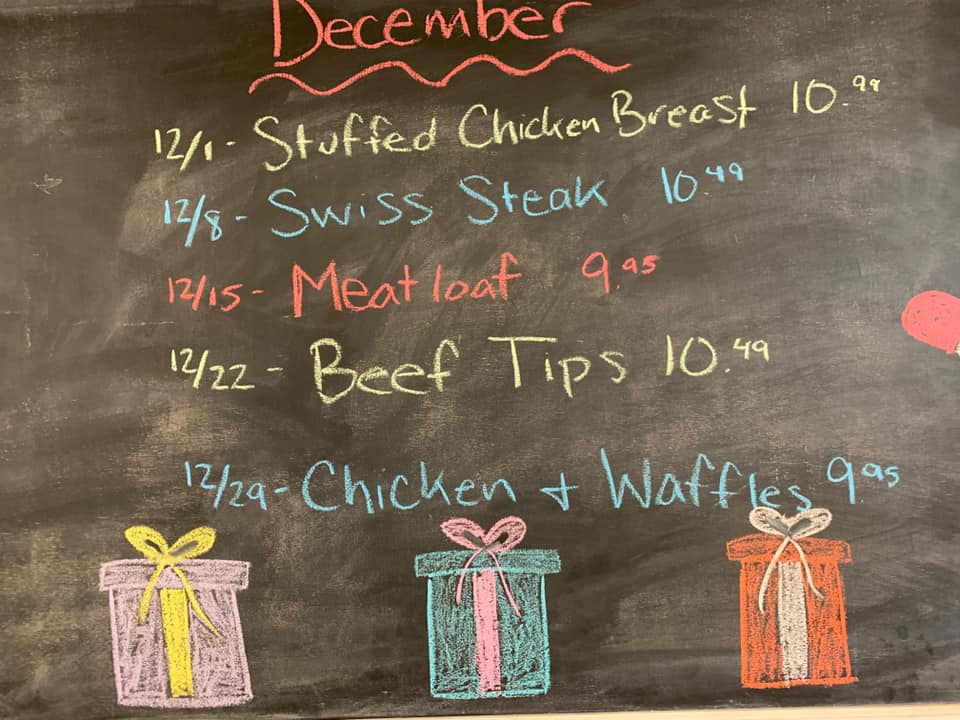 December
12/1 - Stuffed Chicken Breast 10.99
12/8 - Swiss Steak 10.49
12/15 - Meatloaf 9.95
12/22 - Beef Tips 10.49
12/29 - Chicken + Waffles 9.95